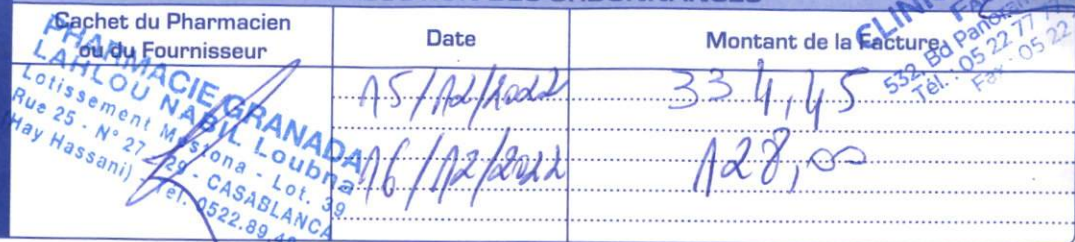 Cachet du Pharmacien
ou du Fournisseur
Date
Montant de la Facture
PHARMACIE GRANADA
LAHLOU NABIL Loubna
Lotissement Mostona - Lot. 39
Rue 25 - N° 27 - 29 - CASABLANCA
(Hay Hassani) - Tél. 0522.89.
15/12/2022
334,45
16/12/2022
128,00
532, Bd
Tél. : 05 22 77
Fax : 05 22